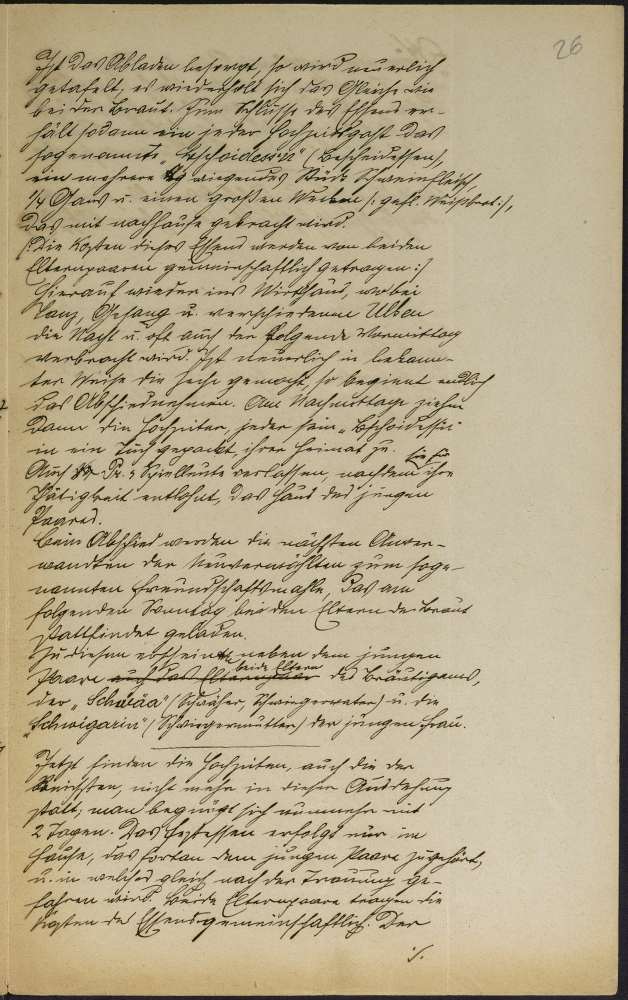 26
Ist das Abladen besorgt, so wird neuerlich
getafelt; es wiederholt sich das Gleiche wie
bei der Braut. Zum Schlusse des Essens er-
hält sodann ein jeder Hochzeitsgast das
sogenannte „Bschoidessn" (Bescheidessen),
ein mehrere kg wiegendes Stück Schweinefleisch,
1/4 Gans u. einen großen Wecken /: gefl. Weißbrot :/,
das mit nachhause gebracht wird.
/: Die Kosten dieses Essens werden von beiden
Elternpaaren gemeinschaftlich getragen :/
Hierauf wieder ins Wirthaus, wobei
Tanz, Gesang u. verschiedenen Ulken
die Nacht u. oft auch der folgende Vormittag
verbracht wird. Ist neuerlich in bekann-
ter Weise die Zeche gemacht, so beginnt endlich
das Abschiednehmen. Am Nachmittage ziehen
dann die Hochzeiter, jeder sein „Bschoidessn"
in ein Tuch gepackt, ihrer Heimat zu.
Auch Spielleute verlassen, nachdem sie für ihre
Tätigkeit entlohnt, das Haus des jungen
Paares.
Beim Abschied werden die nächsten Anver-
wandten der Neuvermählten zum soge-
nannten Freundschaftsmahle, das am
folgenden Sonntag bei den Eltern der Braut
stattfindet geladen.
Zu diesem erscheinen neben dem jungen
Paare beide Eltern des Bräutigams,
der „Schwäa" (Schwäher, Schwiegervater) u. die
„Schwigarin" (Schwiegermutter) der jungen Frau.
Jetzt finden die Hochzeiten, auch die der
Reichsten, nicht mehr in dieser Ausdehnung
statt; man begnügt sich nunmehr mit
2 Tagen. Das Festessen erfolgt nur im
Hause, das fortan dem jungen Paare zugehört,
u. in welches gleich nach der Trauung ge-
fahren wird. Beide Elternpaare tragen die
Kosten des Essens gemeinschaftlich. Der
./.